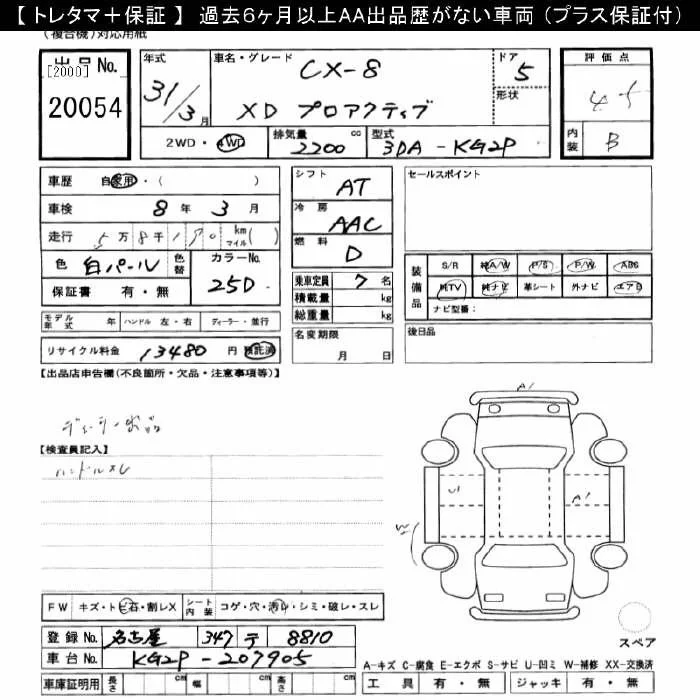 【 トレタマ＋保証 】 過去6ヶ月以上AA出品歴がない車両（プラス保証付）
(複合機)対応用紙
出品No. [2000] 20054
年式 31/3月
車名・グレード CX-8
XD プロアクティブ
ドア 5
形状
2WD・4WD 排気量 2200 cc 型式 3DA-KG2P
評価点
内装 B
車歴 自家用・( )
車検 8年 3月
走行 5万 8千 170 km マイル( )
色 白パール 色替 カラーNo. 25D
保証書 有・無
モデル年式 年 ハンドル 左・右 ディーラー・並行
リサイクル料金 13480 円 預託済
シフト AT
冷房 AAC
燃料 D
乗車定員 7名
積載量 kg
総重量 kg
名変期限 月 日
セールスポイント
装備品 S/R 純A/W P/S P/W ABS
純TV 純ナビ 革シート 外ナビ エアB
ナビ型番：
後日品
【出品店申告欄(不良箇所・欠品・注意事項等)】
ディーラー出品
【検査員記入】
ハンドルスレ
A1
U1
A1
W
FW キズ・トビ石・割レX シート内装 コゲ・穴・汚レ・シミ・破レ・スレ
登録No. 名古屋 347 テ 8810
車台No. KG2P-207905
車庫証明用 長さ cm 幅 cm 高さ cm
スペア
A-キズ C-腐食 E-エクボ S-サビ U-凹ミ W-補修 XX-交換済
工具 有・無 ジャッキ 有・無